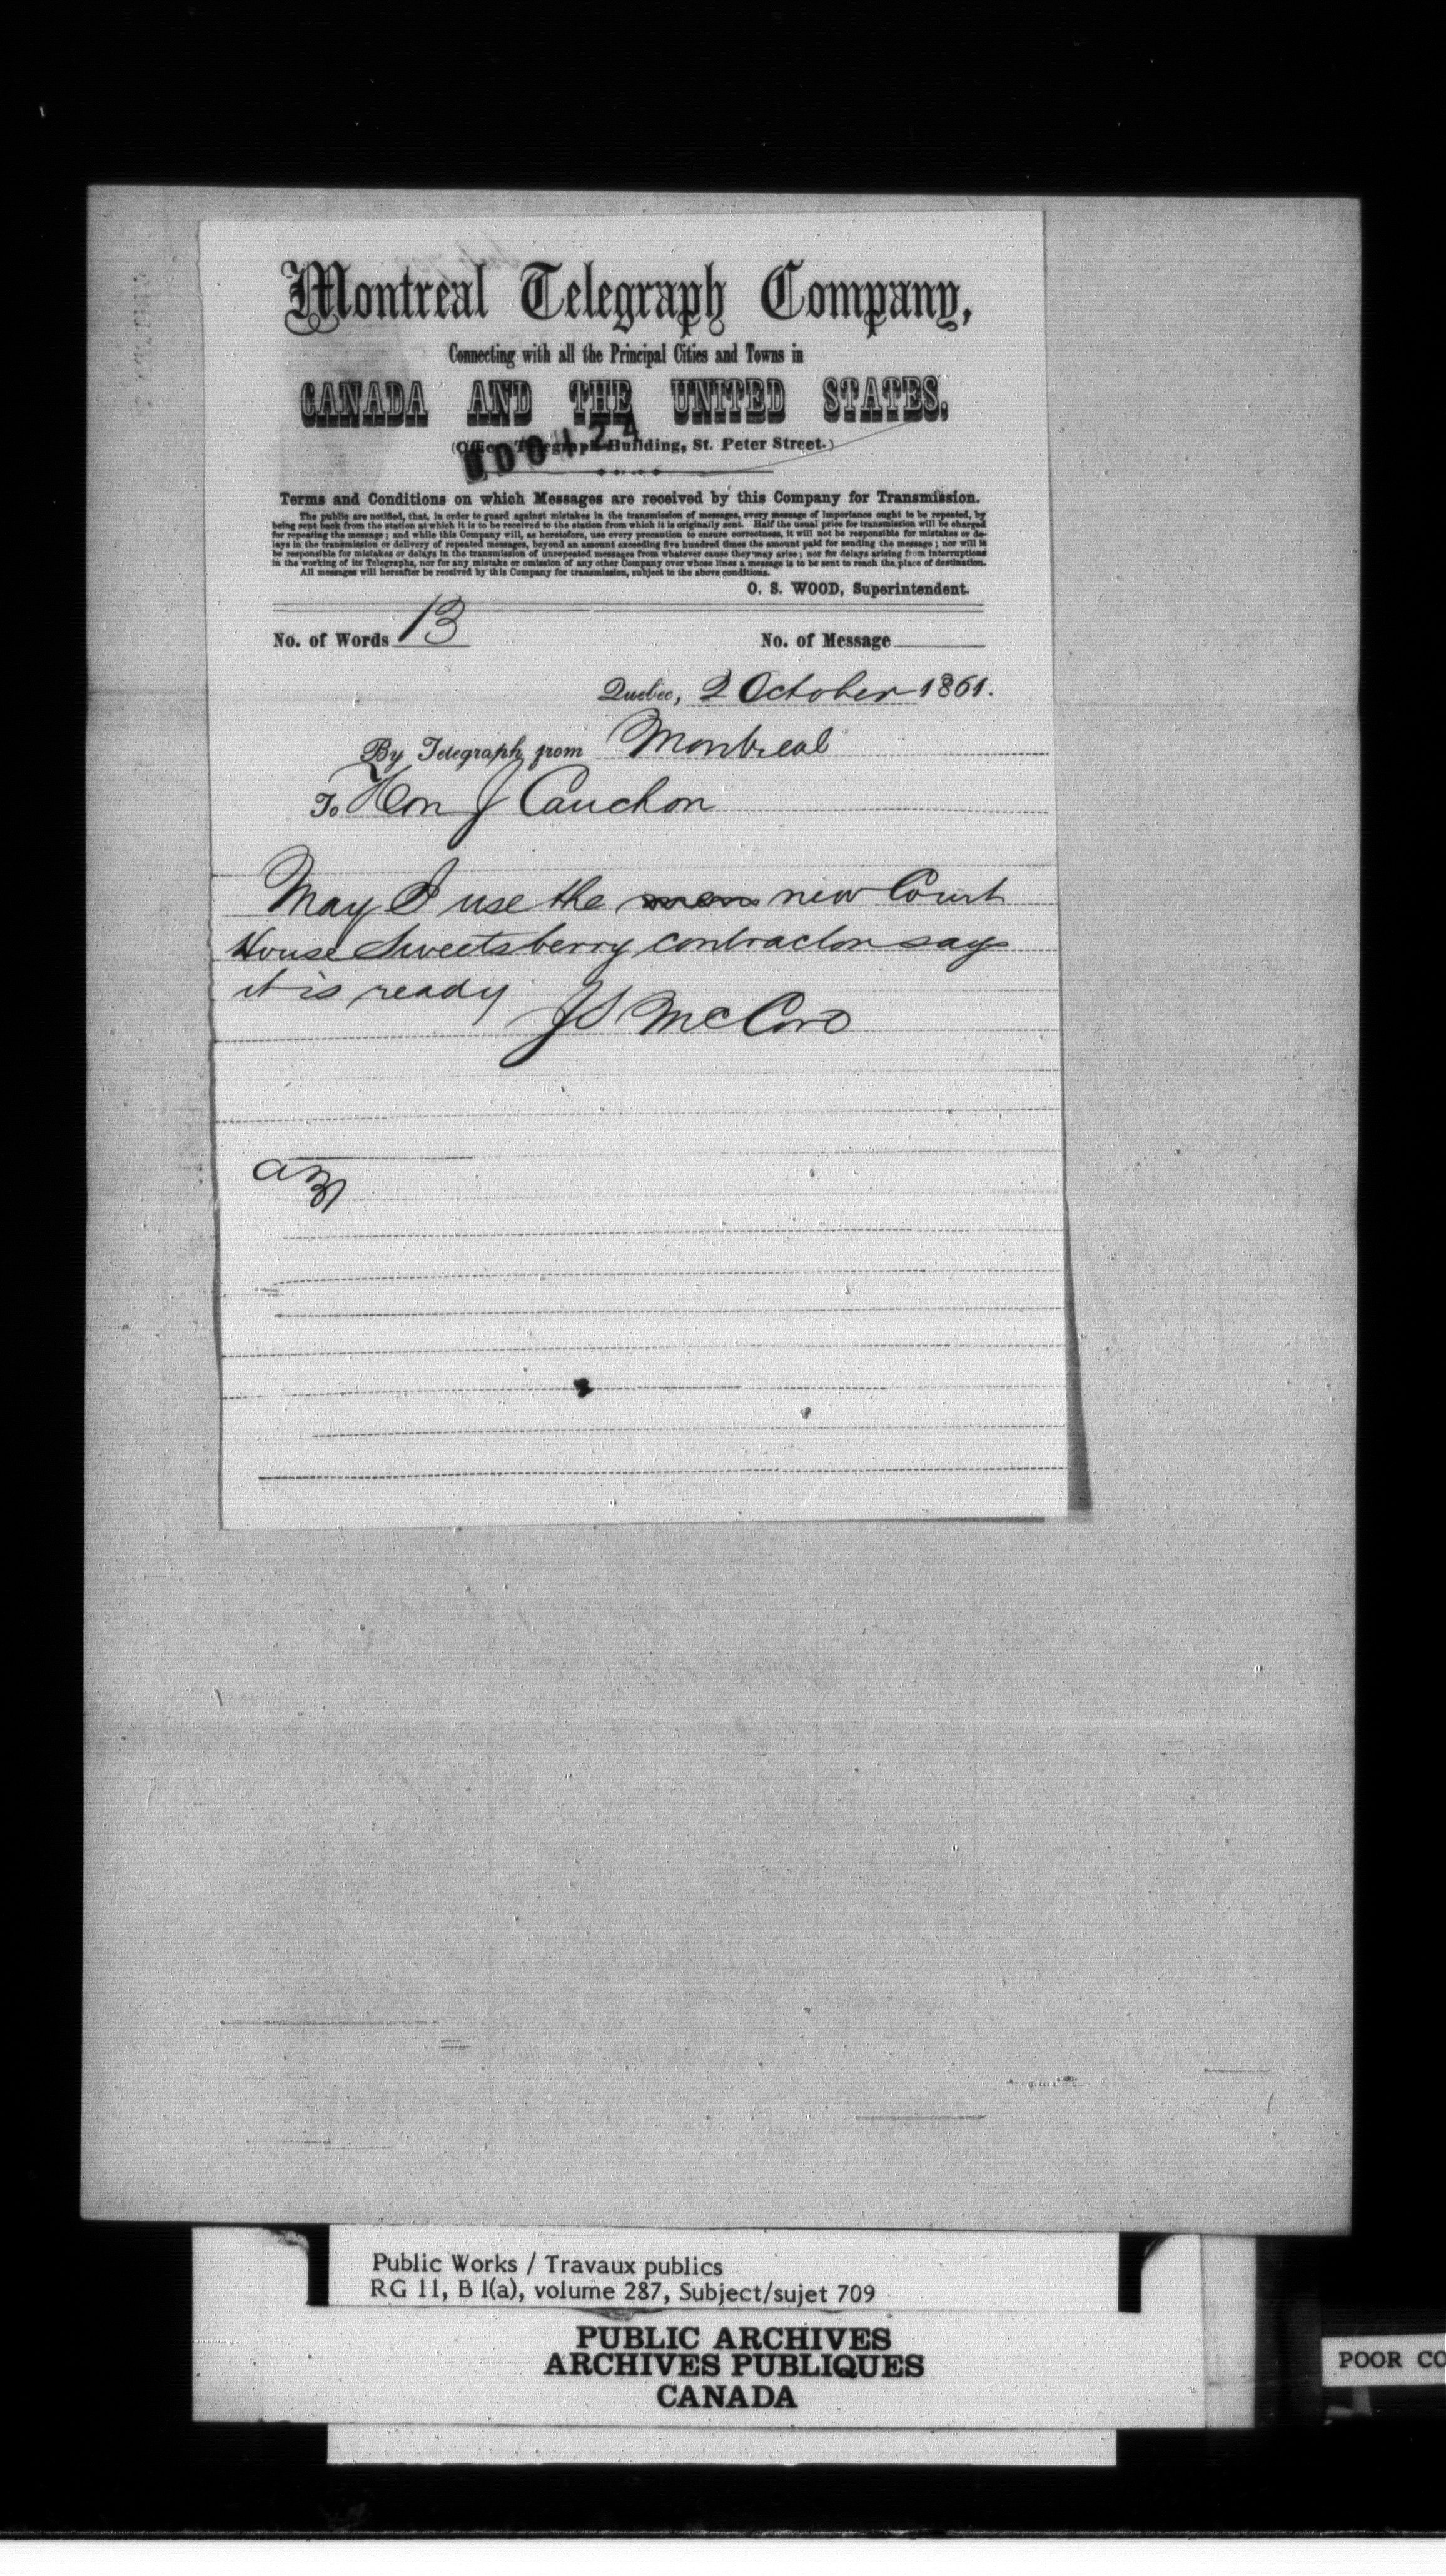 Montreal Telegraph Company,
Connecting with all the Principal Cities and Towns in
CANADA AND THE UNITED STATES.
(Office, Telegraph Building, St. Peter Street.)
Terms and Conditions on which Messages are received by this Company for Transmission.
The public are notified, that, in order to guard against mistakes in the transmission of messages, every message of importance ought to be repeated, by
being sent back from the station at which it is to be received to the station from which it is originally sent. Half the usual price for transmission will be charged
for repeating the message; and while this Company will, as heretofore, use every precaution to ensure correctness, it will not be responsible for mistakes or de-
lays in the transmission or delivery of repeated messages, beyond an amount exceeding five hundred times the amount paid for sending the message; nor will it
be responsible for mistakes or delays in the transmission of unrepeated messages from whatever cause they may arise; nor for delays arising from interruptions
in the working of its Telegraphs, nor for any mistake or omission of any other Company over whose lines a message is to be sent to reach the place of destination.
All messages will hereafter be received by this Company for transmission, subject to the above conditions.
O. S. WOOD, Superintendent.
No. of Words 13 No. of Message
Quebec, 2 October 1861.
By Telegraph from Montreal
To Hon J Cauchon
May I use the new Court
House Sweetsberry contractor says
it is ready
JS McCord
Public Works / Travaux publics
RG 11, B 1(a), volume 287, Subject/sujet 709
PUBLIC ARCHIVES
ARCHIVES PUBLIQUES
CANADA
POOR CO